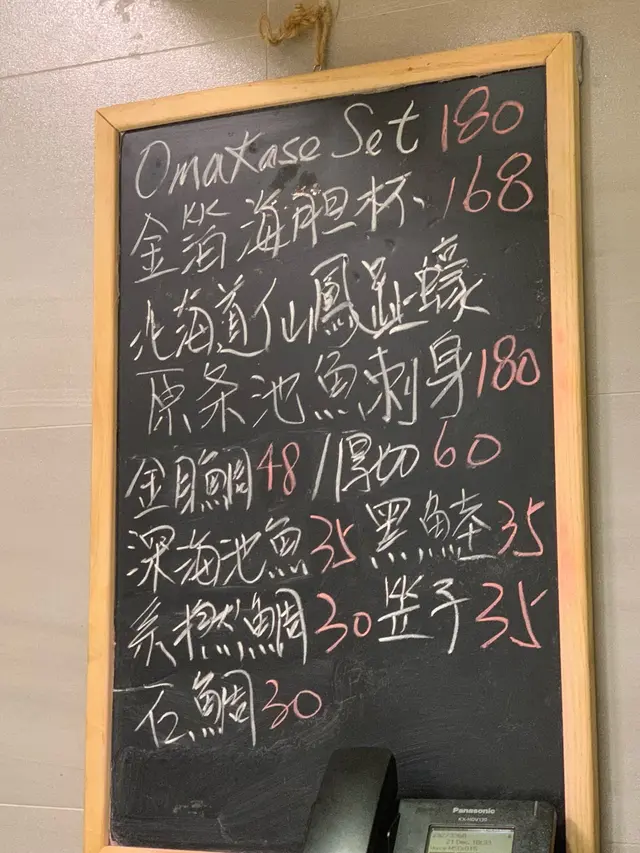 Omakase Set 180
金箔海胆杯 168
北海道仙鳳趾蠔
原条池魚刺身 180
金目鯛 48 /厚切 60
深海池魚 35 黑鮭 35
鯛 30 子 35
石鯛 30
Panasonic